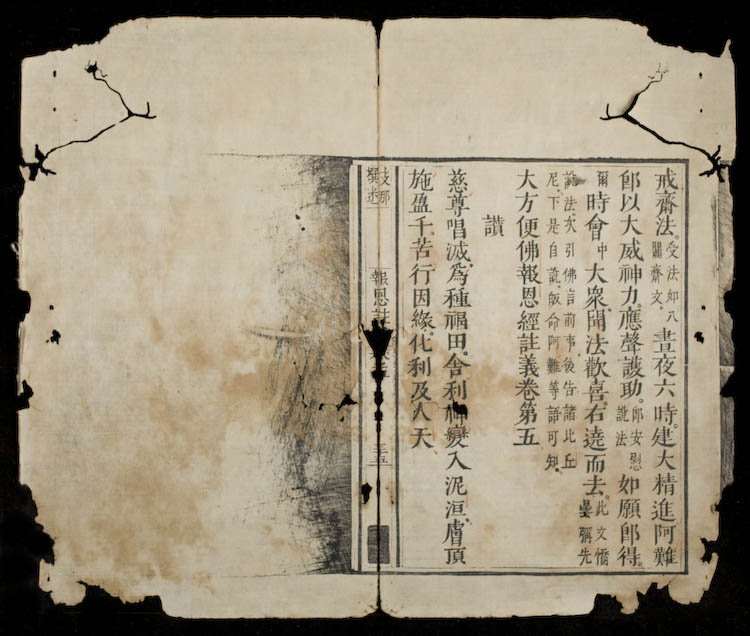 戒齋法。受法如八關齋文。晝夜六時。建大精進阿難
卽以大威神力。應聲護助。卽安慰說法如願卽得。
爾時會中大衆。聞法歡喜。右遶而去。此文憍曇彌先
說法。次引佛言前事。後告諸比丘
尼。下是自說。皈命阿難等語可知。
大方便佛報恩經註義卷第五
讚
慈尊唱滅。爲種福田。舍利神變入泥洹。膚頂
施盈千。苦行因緣。化利及人天
支那撰述
報恩註